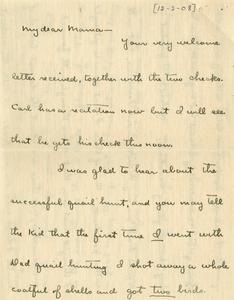 [12-2-08]
My dear Mama—
Your very welcome
letter received, together with the two checks.
Carl has a recitation now but I will see
that he gets his check this noon.
I was glad to hear about the
successful quail hunt, and you may tell
the Kid that the first time I went with
Dad quail hunting I shot away a whole
coatful of shells and got two birds.